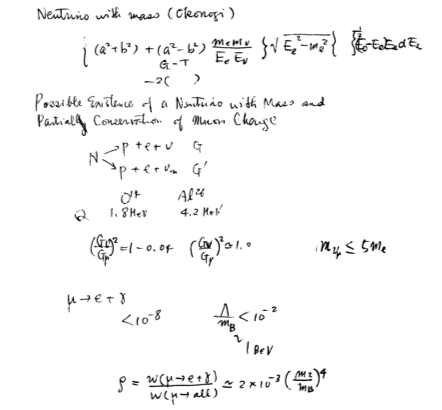 Neutrino with mass (Okonogi)
{ (a²+b²) + (a²-b²) mₑmᵥ/EₑEᵥ } {√Eₑ²-mₑ²}
G.-T
-2( )
Possible Existence of a Neutrino with Mass and
Partially Conservation of Muon Charge
N → p + e + ν G
→ p + e + νₘ G'
O¹⁴ Al²⁶
Q 1.8 MeV 4.2 MeV
= 1 - 0.04 ≃ 1.0 ≤ 5mₑ
μ → e + γ
< 10⁻⁸ Λ/m_B < 10⁻²
1 BeV
ρ = w(μ→e+γ)/w(μ→all) ≃ 2 × 10⁻³